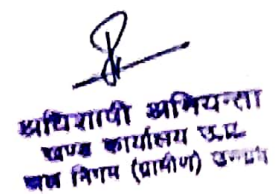 अधिशाषी अभियन्ता
खण्ड कार्यालय उ.प्र.
जल निगम (ग्रामीण) उन्नाव